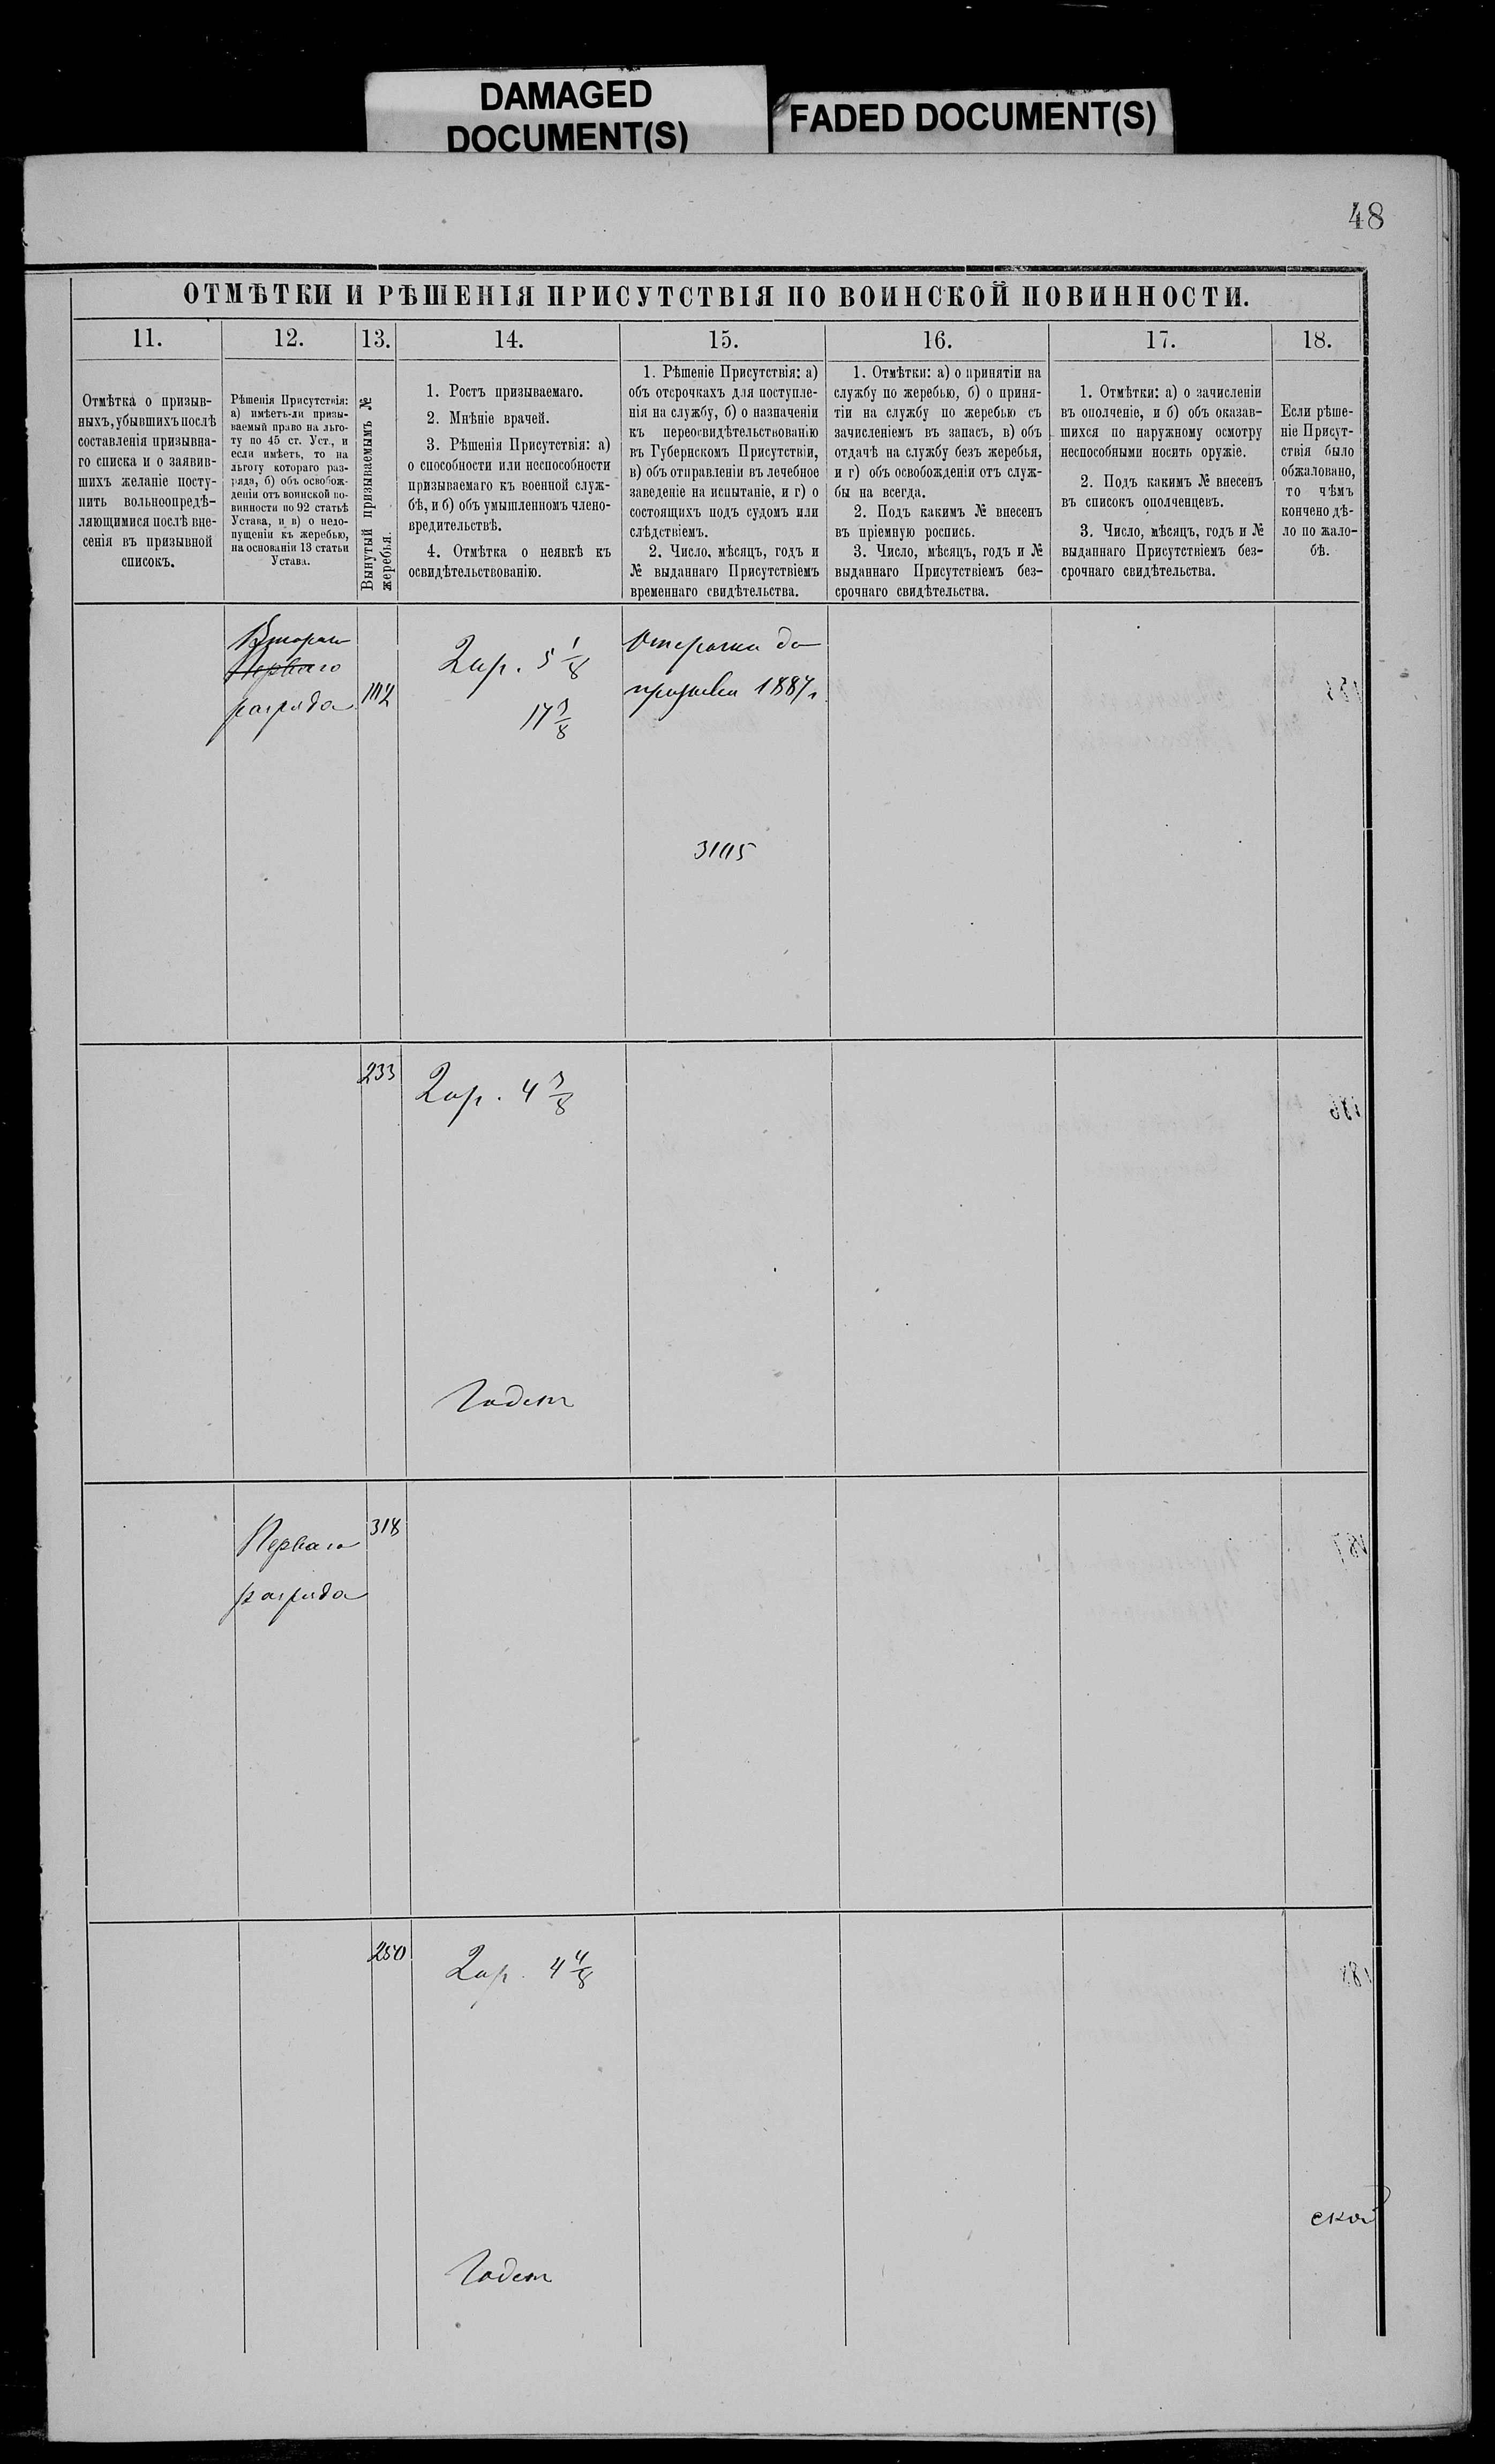 DAMAGED
DOCUMENT(S)
FADED DOCUMENT(S)
48
ОТМѢТКИ И РѢШЕНІЯ ПРИСУТСТВІЯ ПО ВОИНСКОЙ ПОВИННОСТИ.
11.
Отмѣтка о призыв-
ныхъ, убывшихъ послѣ
составленія призывна-
го списка и о заявив-
шихъ желаніе посту-
пить вольноопредѣ-
ляющимися послѣ вне-
сенія въ призывной
списокъ.
12.
Рѣшенія Присутствія:
а) имѣетъ-ли призы-
ваемый право на льго-
ту по 45 ст. Уст., и
если имѣетъ, то на
льготу котораго раз-
ряда, б) объ освобож-
деніи отъ воинской по-
винности по 92 статьѣ
Устава, и в) о недо-
пущеніи къ жеребью,
на основаніи 13 статьи
Устава.
13.
Вынутый призываемымъ №
жеребья.
14.
1. Ростъ призываемаго.
2. Мнѣніе врачей.
3. Рѣшенія Присутствія: а)
о способности или неспособности
призываемаго къ военной служ-
бѣ, и б) объ умышленномъ члено-
вредительствѣ.
4. Отмѣтка о неявкѣ къ
освидѣтельствованію.
15.
1. Рѣшеніе Присутствія: а)
объ отсрочкахъ для поступле-
нія на службу, б) о назначеніи
къ переосвидѣтельствованію
въ Губернскомъ Присутствіи,
в) объ отправленіи въ лечебное
заведеніе на испытаніе, и г) о
состоящихъ подъ судомъ или
слѣдствіемъ.
2. Число, мѣсяцъ, годъ и
№ выданнаго Присутствіемъ
временнаго свидѣтельства.
16.
1. Отмѣтки: а) о принятіи на
службу по жеребью, б) о приня-
тіи на службу по жеребью съ
зачисленіемъ въ запасъ, в) объ
отдачѣ на службу безъ жеребья,
и г) объ освобожденіи отъ служ-
бы на всегда.
2. Подъ какимъ № внесенъ
въ пріемную роспись.
3. Число, мѣсяцъ, годъ и №
выданнаго Присутствіемъ без-
срочнаго свидѣтельства.
17.
1. Отмѣтки: а) о зачисленіи
въ ополченіе, и б) объ оказав-
шихся по наружному осмотру
неспособными носить оружіе.
2. Подъ какимъ № внесенъ
въ списокъ ополченцевъ.
3. Число, мѣсяцъ, годъ и №
выданнаго Присутствіемъ без-
срочнаго свидѣтельства.
18.
Если рѣше-
ніе Присут-
ствія было
обжаловано,
то чѣмъ
кончено дѣ-
ло по жало-
бѣ.
Втораго
Перваго
разряда
2 ар. 5 1/8
Отсрочка до
призыва 1887 г.
233
2 ар. 4 7/8
Годенъ
Перваго
разряда
318
250
2 ар. 4 4/8
Годенъ
ской